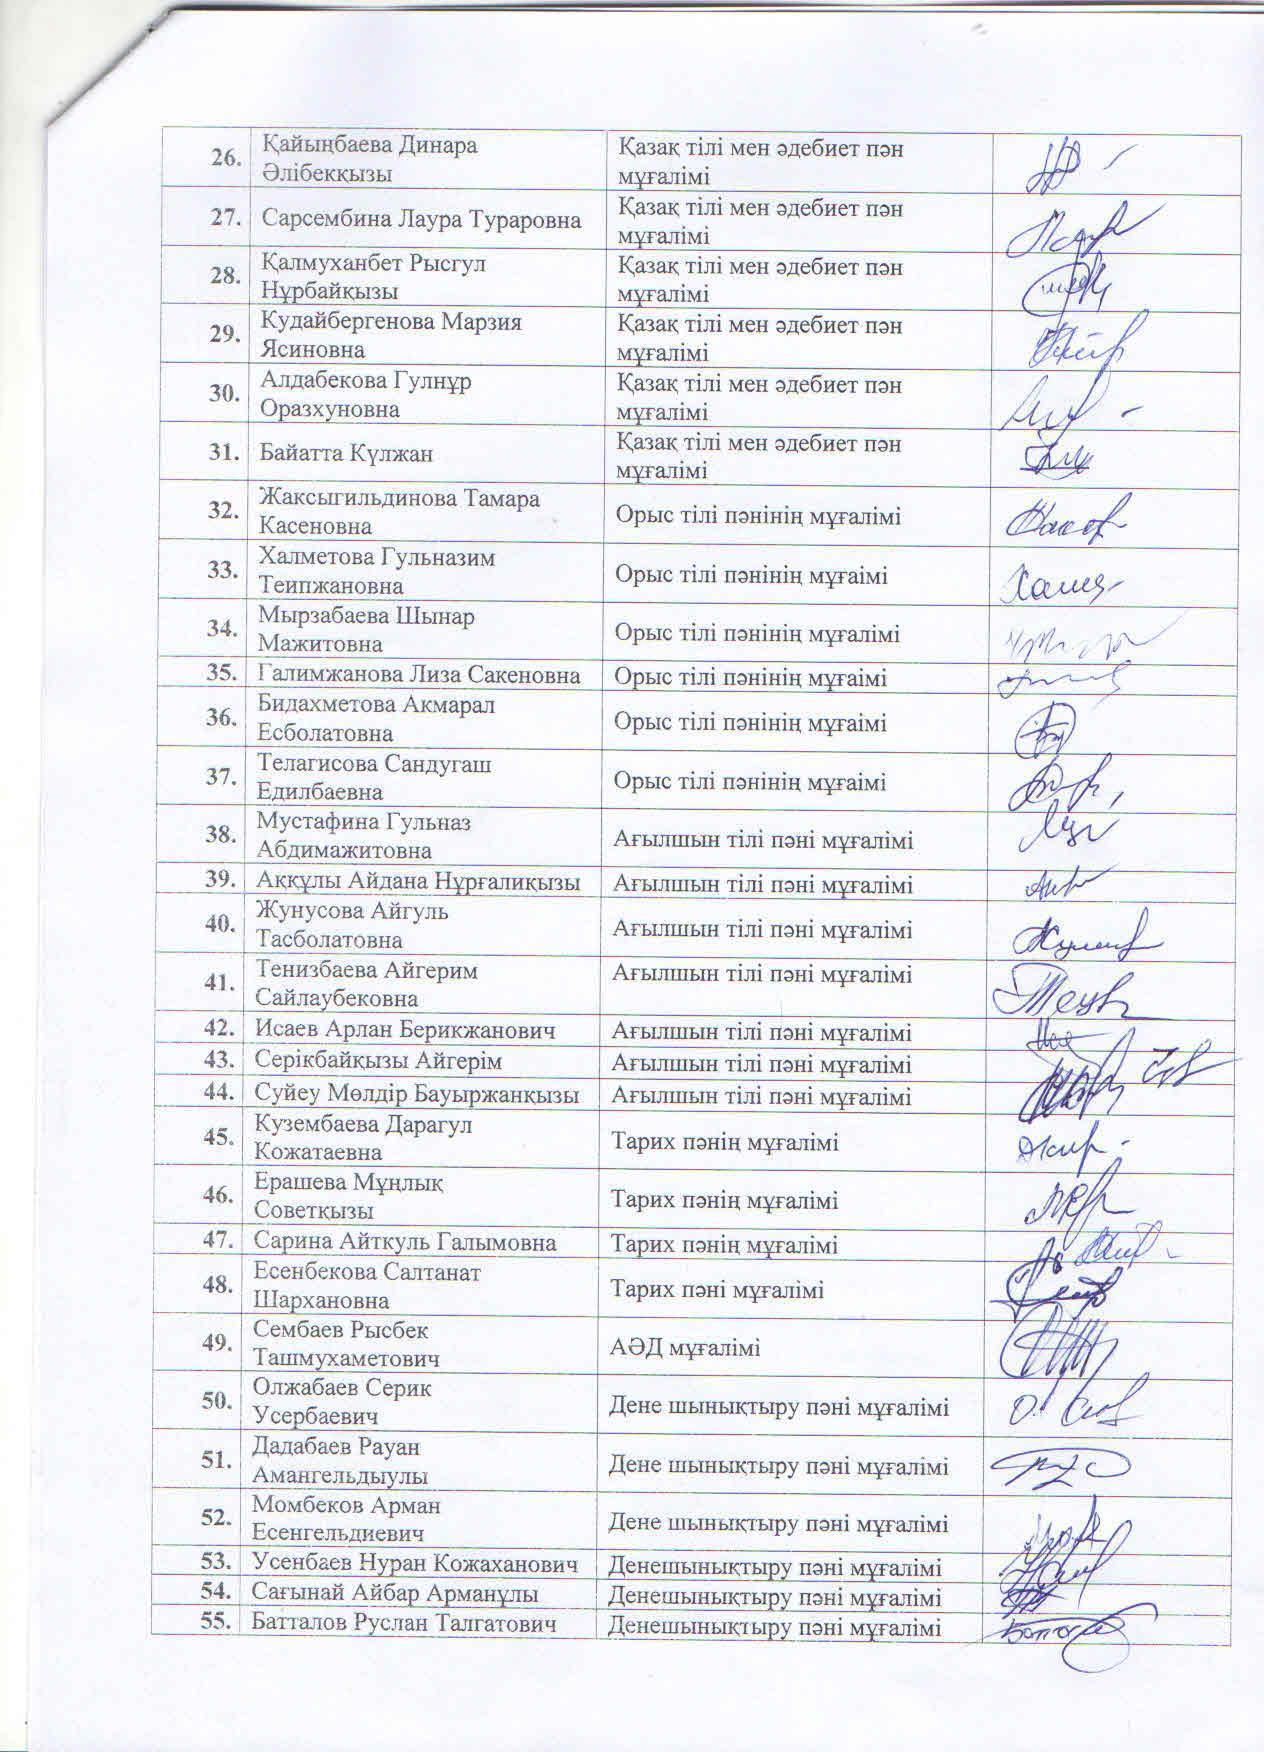 26. Қайыңбаева Динара Қазақ тілі мен әдебиет пән
Әлібекқызы мұғалімі
27. Сарсембина Лаура Тураровна Қазақ тілі мен әдебиет пән
мұғалімі
28. Қалмуханбет Рысгул Қазақ тілі мен әдебиет пән
Нұрбайқызы мұғалімі
29. Кудайбергенова Марзия Қазақ тілі мен әдебиет пән
Ясиновна мұғалімі
30. Алдабекова Гулнұр Қазақ тілі мен әдебиет пән
Оразхуновна мұғалімі
31. Байатта Күлжан Қазақ тілі мен әдебиет пән
мұғалімі
32. Жаксыгильдинова Тамара Орыс тілі пәнінің мұғалімі
Касеновна
33. Халметова Гульназим Орыс тілі пәнінің мұғаімі
Теипжановна
34. Мырзабаева Шынар Орыс тілі пәнінің мұғалімі
Мажитовна
35. Галимжанова Лиза Сакеновна Орыс тілі пәнінің мұғаімі
36. Бидахметова Акмарал Орыс тілі пәнінің мұғаімі
Есболатовна
37. Телагисова Сандугаш Орыс тілі пәнінің мұғаімі
Едилбаевна
38. Мустафина Гульназ Ағылшын тілі пәні мұғалімі
Абдимажитовна
39. Аққұлы Айдана Нұрғалиқызы Ағылшын тілі пәні мұғалімі
40. Жунусова Айгуль Ағылшын тілі пәні мұғалімі
Тасболатовна
41. Тенизбаева Айгерим Ағылшын тілі пәні мұғалімі
Сайлаубековна
42. Исаев Арлан Берикжанович Ағылшын тілі пәні мұғалімі
43. Серікбайқызы Айгерім Ағылшын тілі пәні мұғалімі
44. Суйеу Мөлдір Бауыржанқызы Ағылшын тілі пәні мұғалімі
45. Кузембаева Дарагул Тарих пәнің мұғалімі
Кожатаевна
46. Ерашева Мұңлық Тарих пәнің мұғалімі
Советқызы
47. Сарина Айткуль Галымовна Тарих пәнің мұғалімі
48. Есенбекова Салтанат Тарих пәні мұғалімі
Шархановна
49. Сембаев Рысбек АӘД мұғалімі
Ташмухаметович
50. Олжабаев Серик Дене шынықтыру пәні мұғалімі
Усербаевич
51. Дадабаев Рауан Дене шынықтыру пәні мұғалімі
Амангельдыулы
52. Момбеков Арман Дене шынықтыру пәні мұғалімі
Есенгельдиевич
53. Усенбаев Нуран Кожаханович Денешынықтыру пәні мұғалімі
54. Сағынай Айбар Арманұлы Денешынықтыру пәні мұғалімі
55. Батталов Руслан Талгатович Денешынықтыру пәні мұғалімі